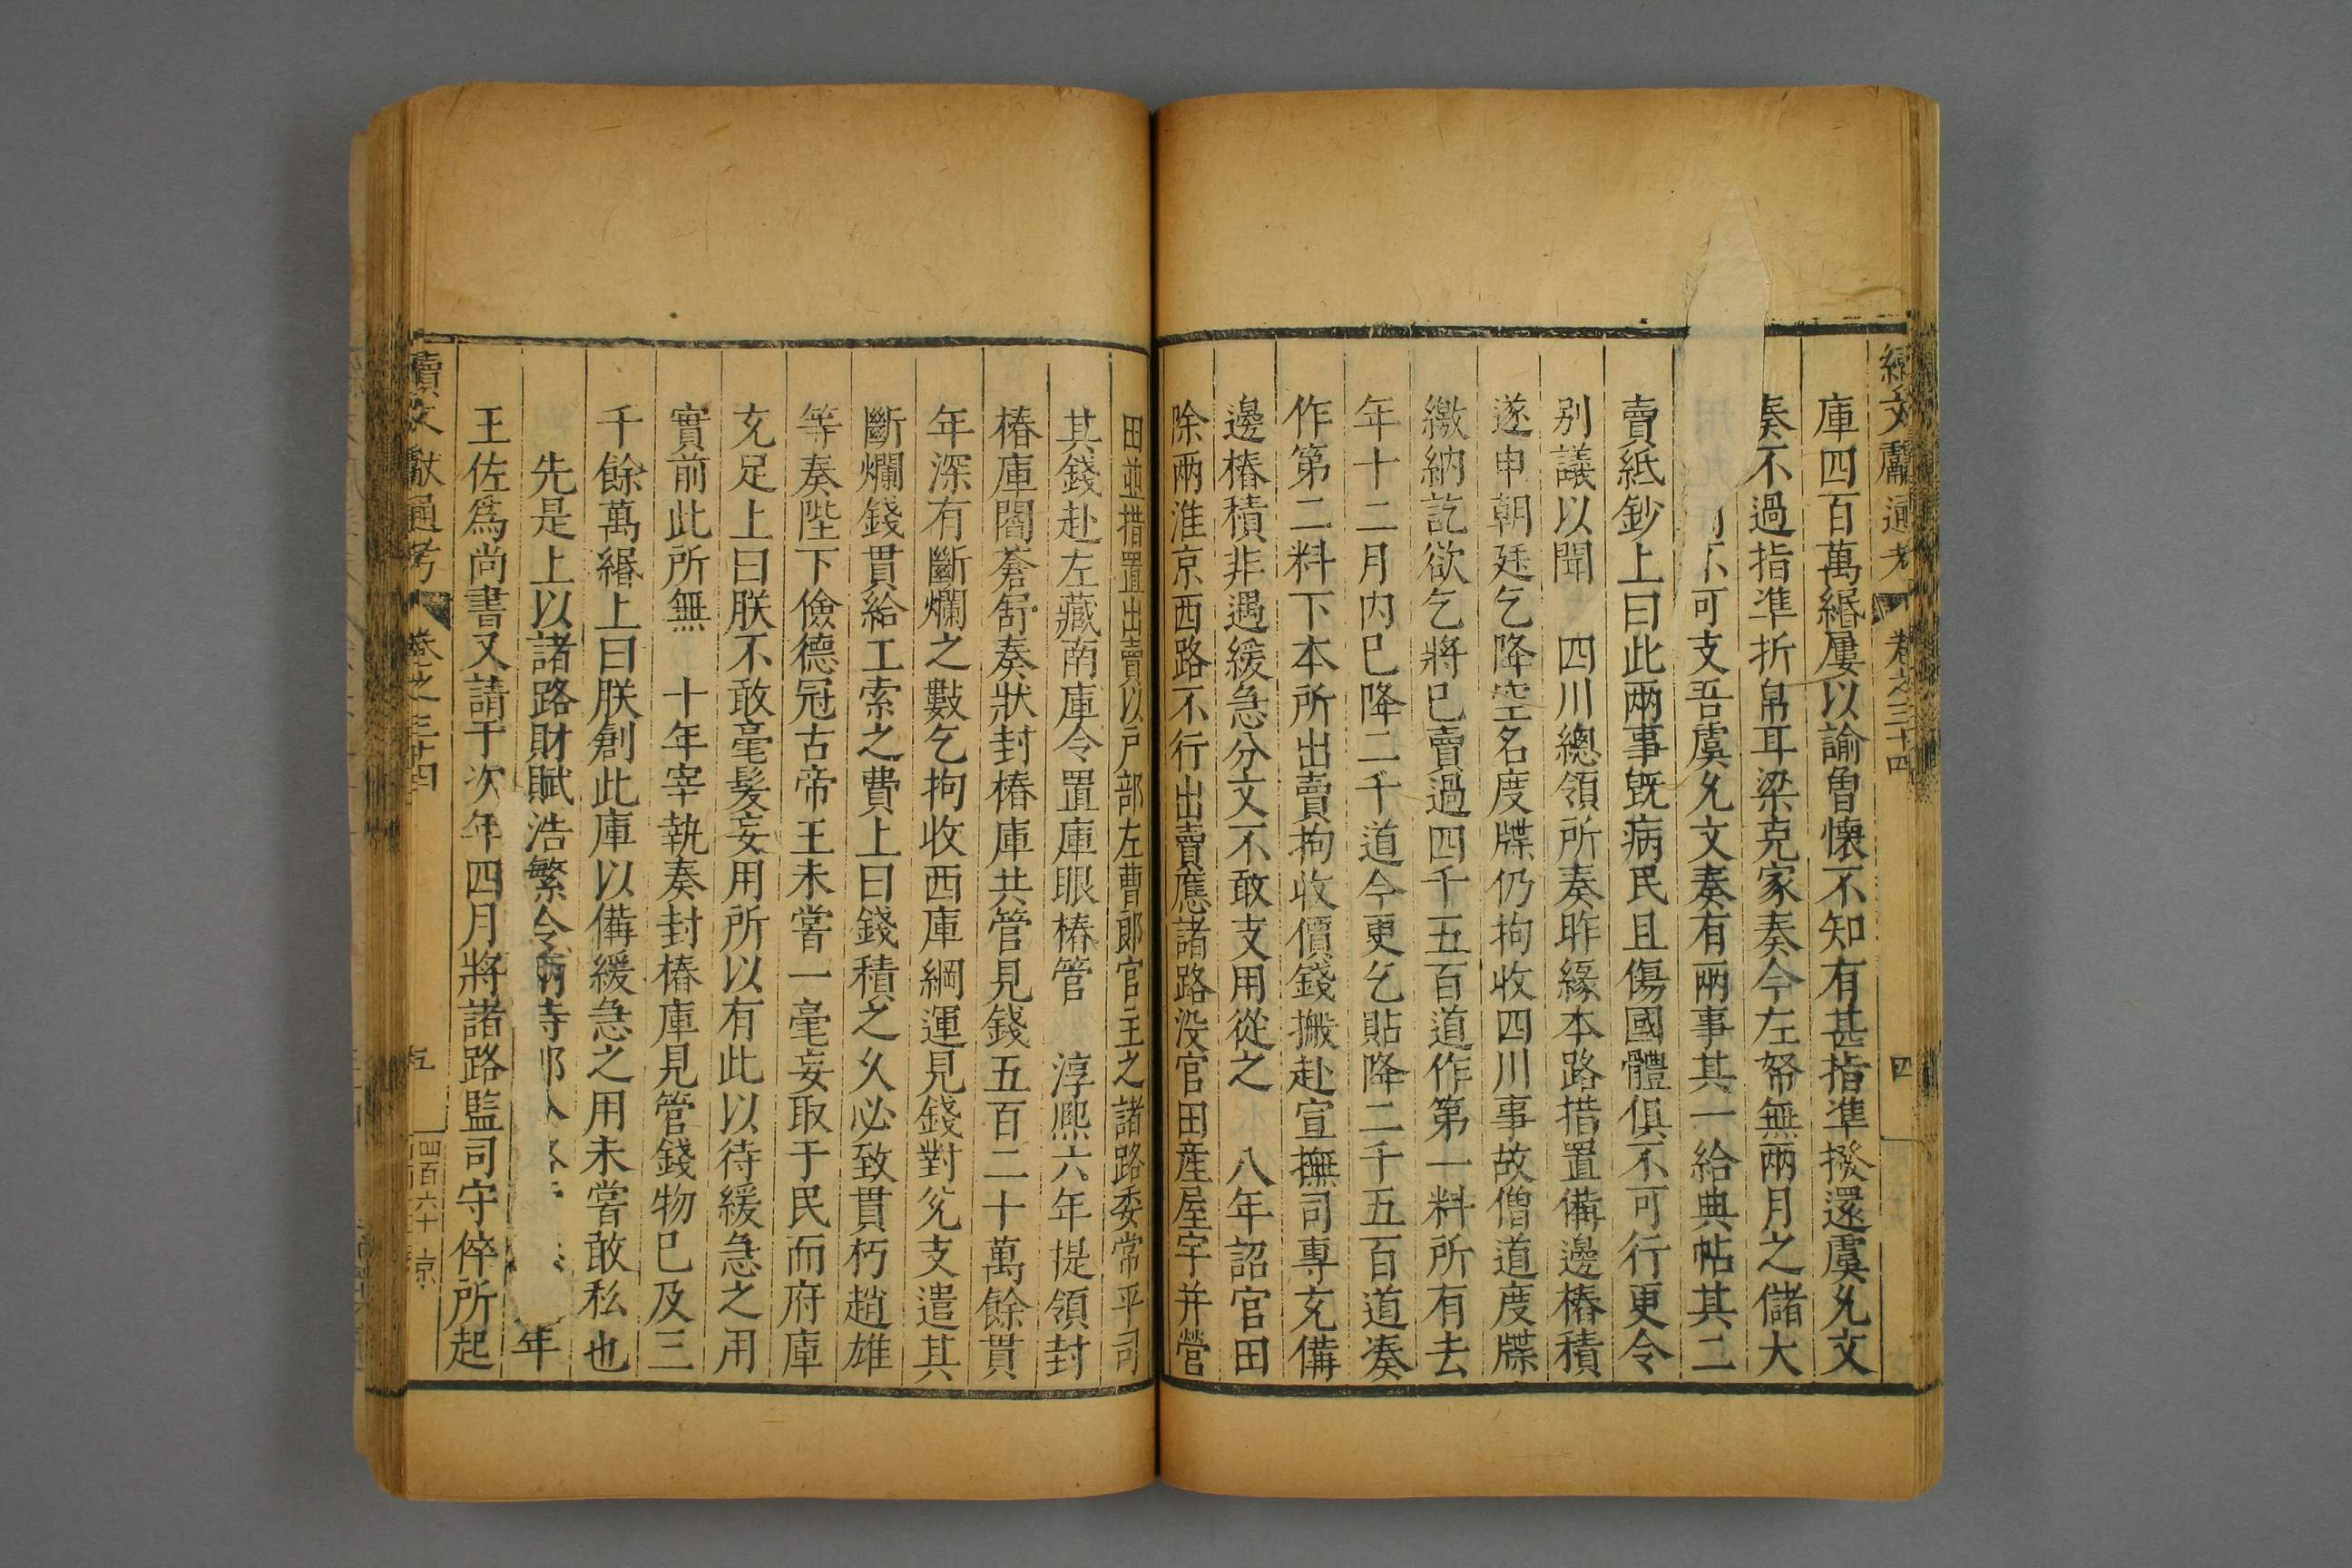 續文獻通考 卷之三十四 四
庫四百萬緡屢以諭曾懷不知有甚指準撥還虞允文
奏不過指準折帛耳梁克家奏今左帑無兩月之儲大
可支吾虞允文奏有兩事其一給典帖其二
賣紙鈔上曰此兩事旣病民且傷國體俱不可行更令
别議以聞 四川總領所奏昨緣本路措置備邊樁積
遂申朝廷乞降空名度牒仍拘收四川事故僧道度牒
繳納訖欲乞將已賣過四千五百道作第一料所有去
年十二月内已降二千道今更乞貼降二千五百道凑
作第二料下本所出賣拘收價錢搬赴宣撫司專充備
邊樁積非遇緩急分文不敢支用從之 八年詔官田
除兩淮京西路不行出賣應諸路没官田産屋宇并營
田並措置出賣以戸部左曹郎官主之諸路委常平司
其錢赴左藏南庫令置庫眼樁管 淳熈六年提領封
樁庫閻蒼舒奏狀封樁庫共管見錢五百二十萬餘貫
年深有斷爛之數乞拘收西庫綱運見錢對兊支遣其
斷爛錢貫給工索之費上曰錢積之乆必致貫朽趙雄
等奏陛下儉德冠古帝王未嘗一毫妄取于民而府庫
充足上曰朕不敢毫髪妄用所以有此以待緩急之用
實前此所無 十年宰執奏封樁庫見管錢物已及三
千餘萬緡上曰朕創此庫以備緩急之用未嘗敢私也
先是上以諸路財賦浩繁令兩 年
王佐爲尚書又請于次年四月將諸路監司守倅所起
續文獻通考 卷之三十四 五 四百六十 京